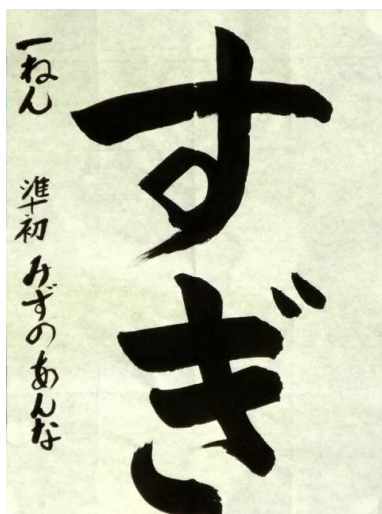 すぎ
一ねん 準初 みずのあんな